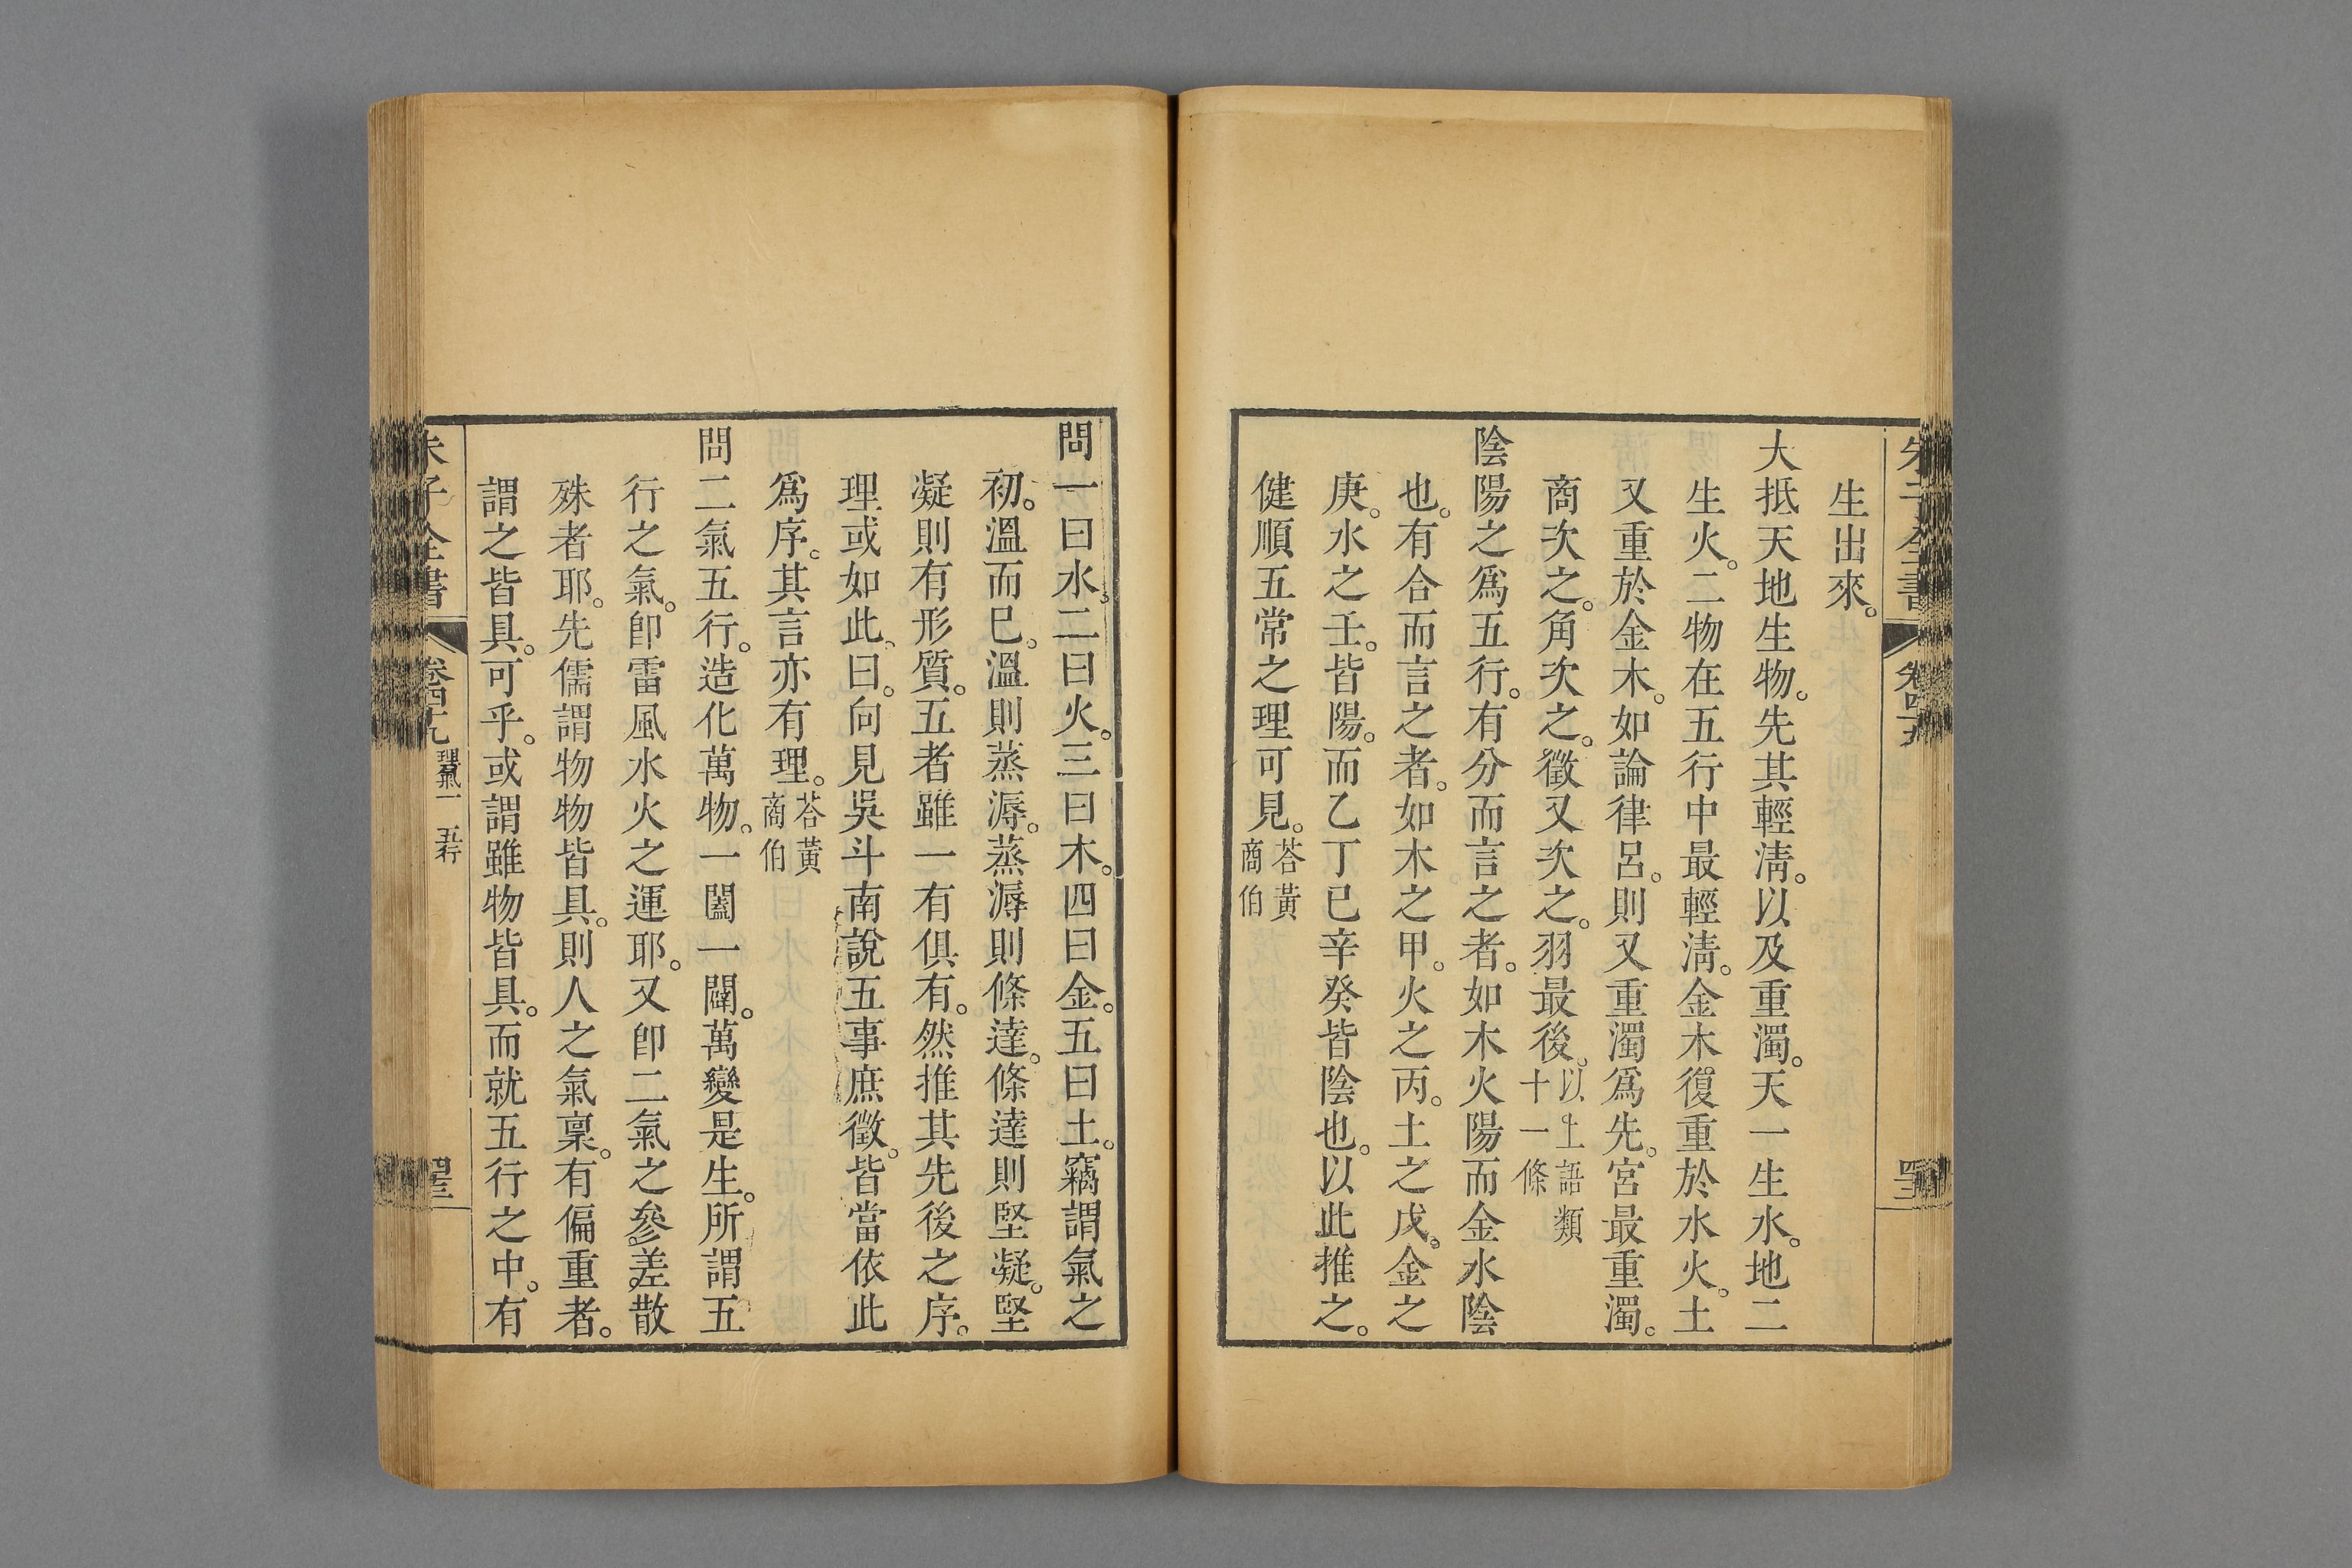 生出來。
大抵天地生物。先其輕淸。以及重濁。天一生水。地二
生火。二物在五行中最輕淸。金木復重於水火。土
又重於金木。如論律呂。則又重濁爲先。宮最重濁。
商次之。角次之。徵又次之。羽最後。以上語類
十一條
陰陽之爲五行。有分而言之者。如木火陽而金水陰
也。有合而言之者。如木之甲。火之丙。土之戊。金之
庚。水之壬。皆陽。而乙丁已辛癸皆陰也。以此推之。
健順五常之理可見。荅黃
商伯
問一曰水。二曰火。三曰木。四曰金。五曰土。竊謂氣之
初。溫而巳。溫則蒸溽。蒸溽則條達。條達則堅凝。堅
凝則有形質。五者雖一有俱有。然推其先後之序。
理或如此、曰。向見吳斗南說五事庶徵。皆當依此
爲序。其言亦有理。荅黃
商伯
問二氣五行。造化萬物。一闔一闢。萬變是生。所謂五
行之氣。卽雷風水火之運耶。又卽二氣之參差散
殊者耶。先儒謂物物皆具。則人之氣稟。有偏重者。
謂之皆具。可乎。或謂雖物皆具。而就五行之中。有
朱子全書
卷四十九
理氣一 五行